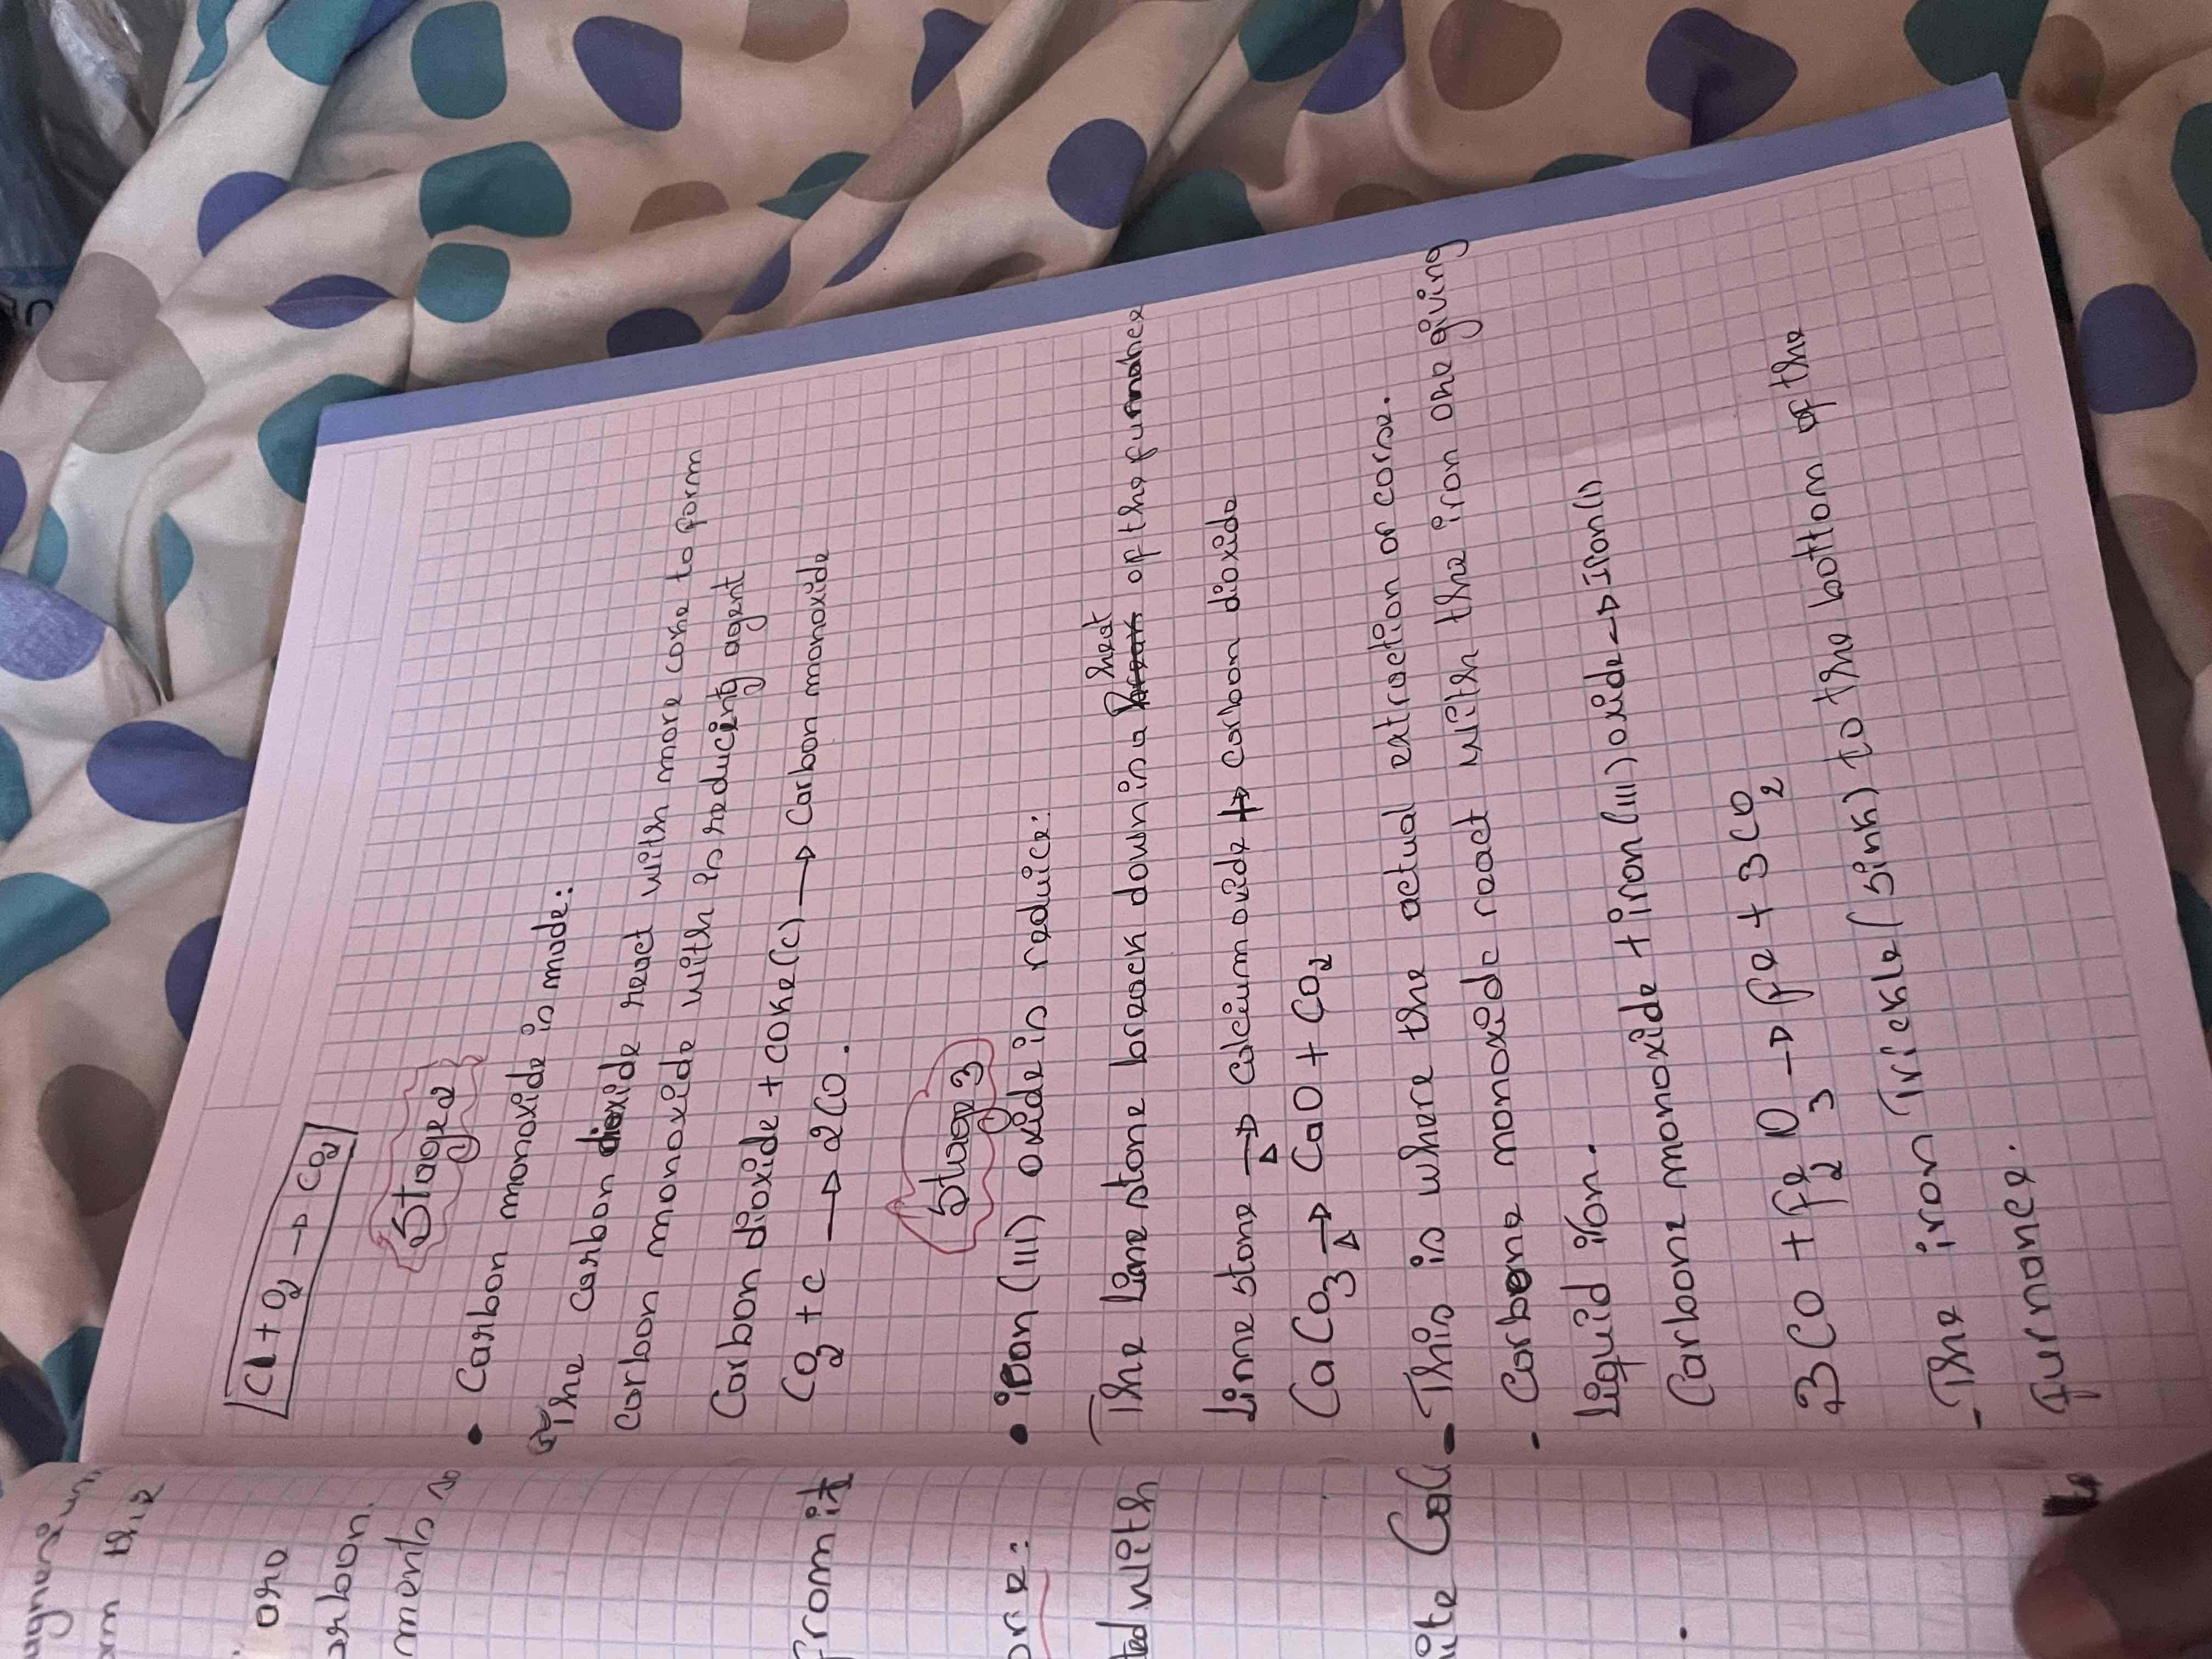 C + O2 → CO2
Stage 2
• Carbon monoxide is made:
The carbon dioxide react with more coke to form
carbon monoxide with is reducing agent
Carbon dioxide + coke(c) → Carbon monoxide
CO2 + C → 2CO.
Stage 3
• iron (III) oxide is reduice:
The lime stone breack down in a heat of the furnance
Linne stone →Δ calcium oxide + carbon dioxide
CaCO3 →Δ CaO + CO2
- This is where the actual extraction of corse.
- Carbone monoxide react with the iron one giving
liquid iron.
Carbone monoxide + iron (III) oxide → Iron(l)
3CO + Fe2O3 → Fe + 3CO2
- The iron Trickle (sink) to the bottom of the
furnance.
orm this
ore
arbon.
ments
from it
ore:
ted with
ite